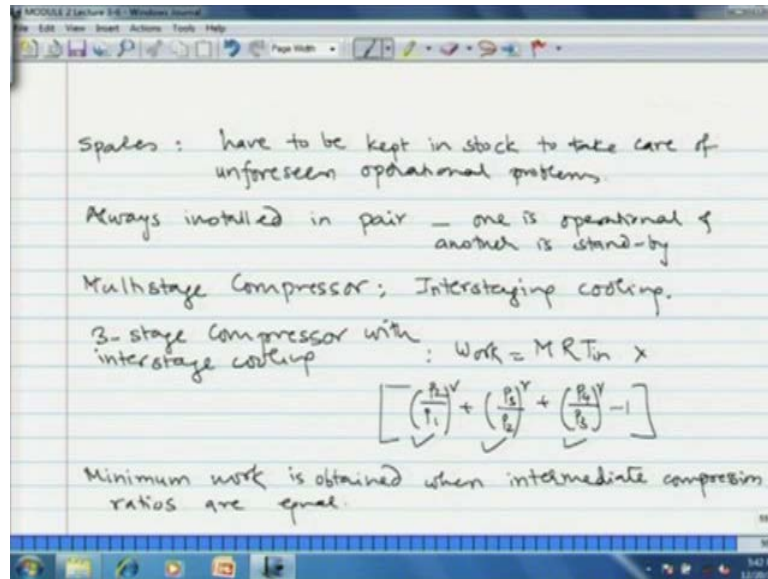 MODULE 2 Lecture 3-6 - Windows Journal
File Edit View Insert Actions Tools Help
Page Width
Spares : have to be kept in stock to take care of
unforeseen operational problems.
Always installed in pair – one is operational &
another is stand-by
Multistage Compressor ; Interstaging cooling.
3-stage Compressor with
interstage cooling : Work = MRTin ×
[(P2/P1)^γ + (P3/P2)^γ + (P4/P3)^γ - 1]
Minimum work is obtained when intermediate compression
ratios are equal.